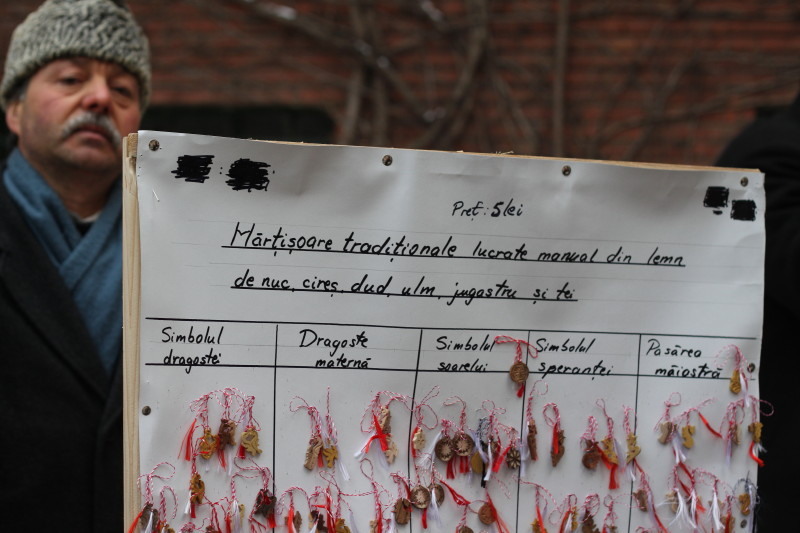 Preț: 5 lei
Mărțișoare tradiționale lucrate manual din lemn
de nuc, cireș, dud, ulm, jugastru și tei
Simbolul
dragostei
Dragoste
maternă
Simbolul
soarelui
Simbolul
speranței
Pasărea
măiastră